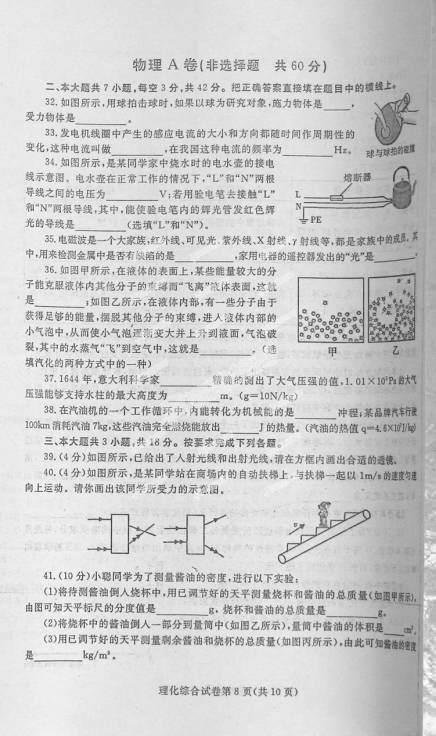 物理 A 卷(非选择题　共 60 分)
二、本大题共 7 小题,每空 3 分,共 42 分。把正确答案直接填在题目中的横线上。
32. 如图所示,用球拍击球时,如果以球为研究对象,施力物体是______,
受力物体是______。
33. 发电机线圈中产生的感应电流的大小和方向都随时间作周期性的
变化,这种电流叫做______,在我国这种电流的频率为______Hz。
球与球拍的碰撞
34. 如图所示,是某同学家中烧水时的电水壶的接电
线示意图。电水壶在正常工作的情况下,“L”和“N”两根
导线之间的电压为______V;若用验电笔去接触“L”
和“N”两根导线,其中,能使验电笔内的辉光管发红色辉
光的导线是______(选填“L”和“N”)。
熔断器
L
N
PE
35. 电磁波是一个大家族,红外线、可见光、紫外线、X 射线、γ 射线等,都是家族中的成员。其
中,用来检测金属中是否有缺陷的是______,家用电器的遥控器发出的“光”是______。
36. 如图甲所示,在液体的表面上,某些能量较大的分
子能克服液体内其他分子的束缚而“飞离”液体表面,这就
是______;如图乙所示,在液体内部,有一些分子由于
获得足够的能量,摆脱其他分子的束缚,进入液体内部的
小气泡中,从而使小气泡逐渐变大并上升到液面,气泡破
裂,其中的水蒸气“飞”到空气中,这就是______。(选
填汽化的两种方式中的一种)
甲
乙
37. 1644 年,意大利科学家______精确的测出了大气压强的值,1.01×10⁵Pa 的大气
压强能够支持水柱的最大高度为______m。(g=10N/kg)
38. 在汽油机的一个工作循环中,内能转化为机械能的是______冲程;某品牌汽车行驶
100km 消耗汽油 7kg,这些汽油完全燃烧能放出______J 的热量。(汽油的热值 q=4.6×10⁷J/kg)
三、本大题共 3 小题,共 18 分。按要求完成下列各题。
39. (4 分)如图所示,已给出了入射光线和出射光线,请在方框内画出合适的透镜。
40. (4 分)如图所示,是某同学站在商场内的自动扶梯上,与扶梯一起以 1m/s 的速度匀速
向上运动。请你画出该同学所受力的示意图。
41. (10 分)小聪同学为了测量酱油的密度,进行以下实验:
(1)将待测酱油倒人烧杯中,用已调节好的天平测量烧杯和酱油的总质量(如图甲所示),
由图可知天平标尺的分度值是______g,烧杯和酱油的总质量是______g。
(2)将烧杯中的酱油倒人一部分到量筒中(如图乙所示),量筒中酱油的体积是______cm³。
(3)用已调节好的天平测量剩余酱油和烧杯的总质量(如图丙所示),由此可知酱油的密度
是______kg/m³。
理化综合试卷第 8 页(共 10 页)